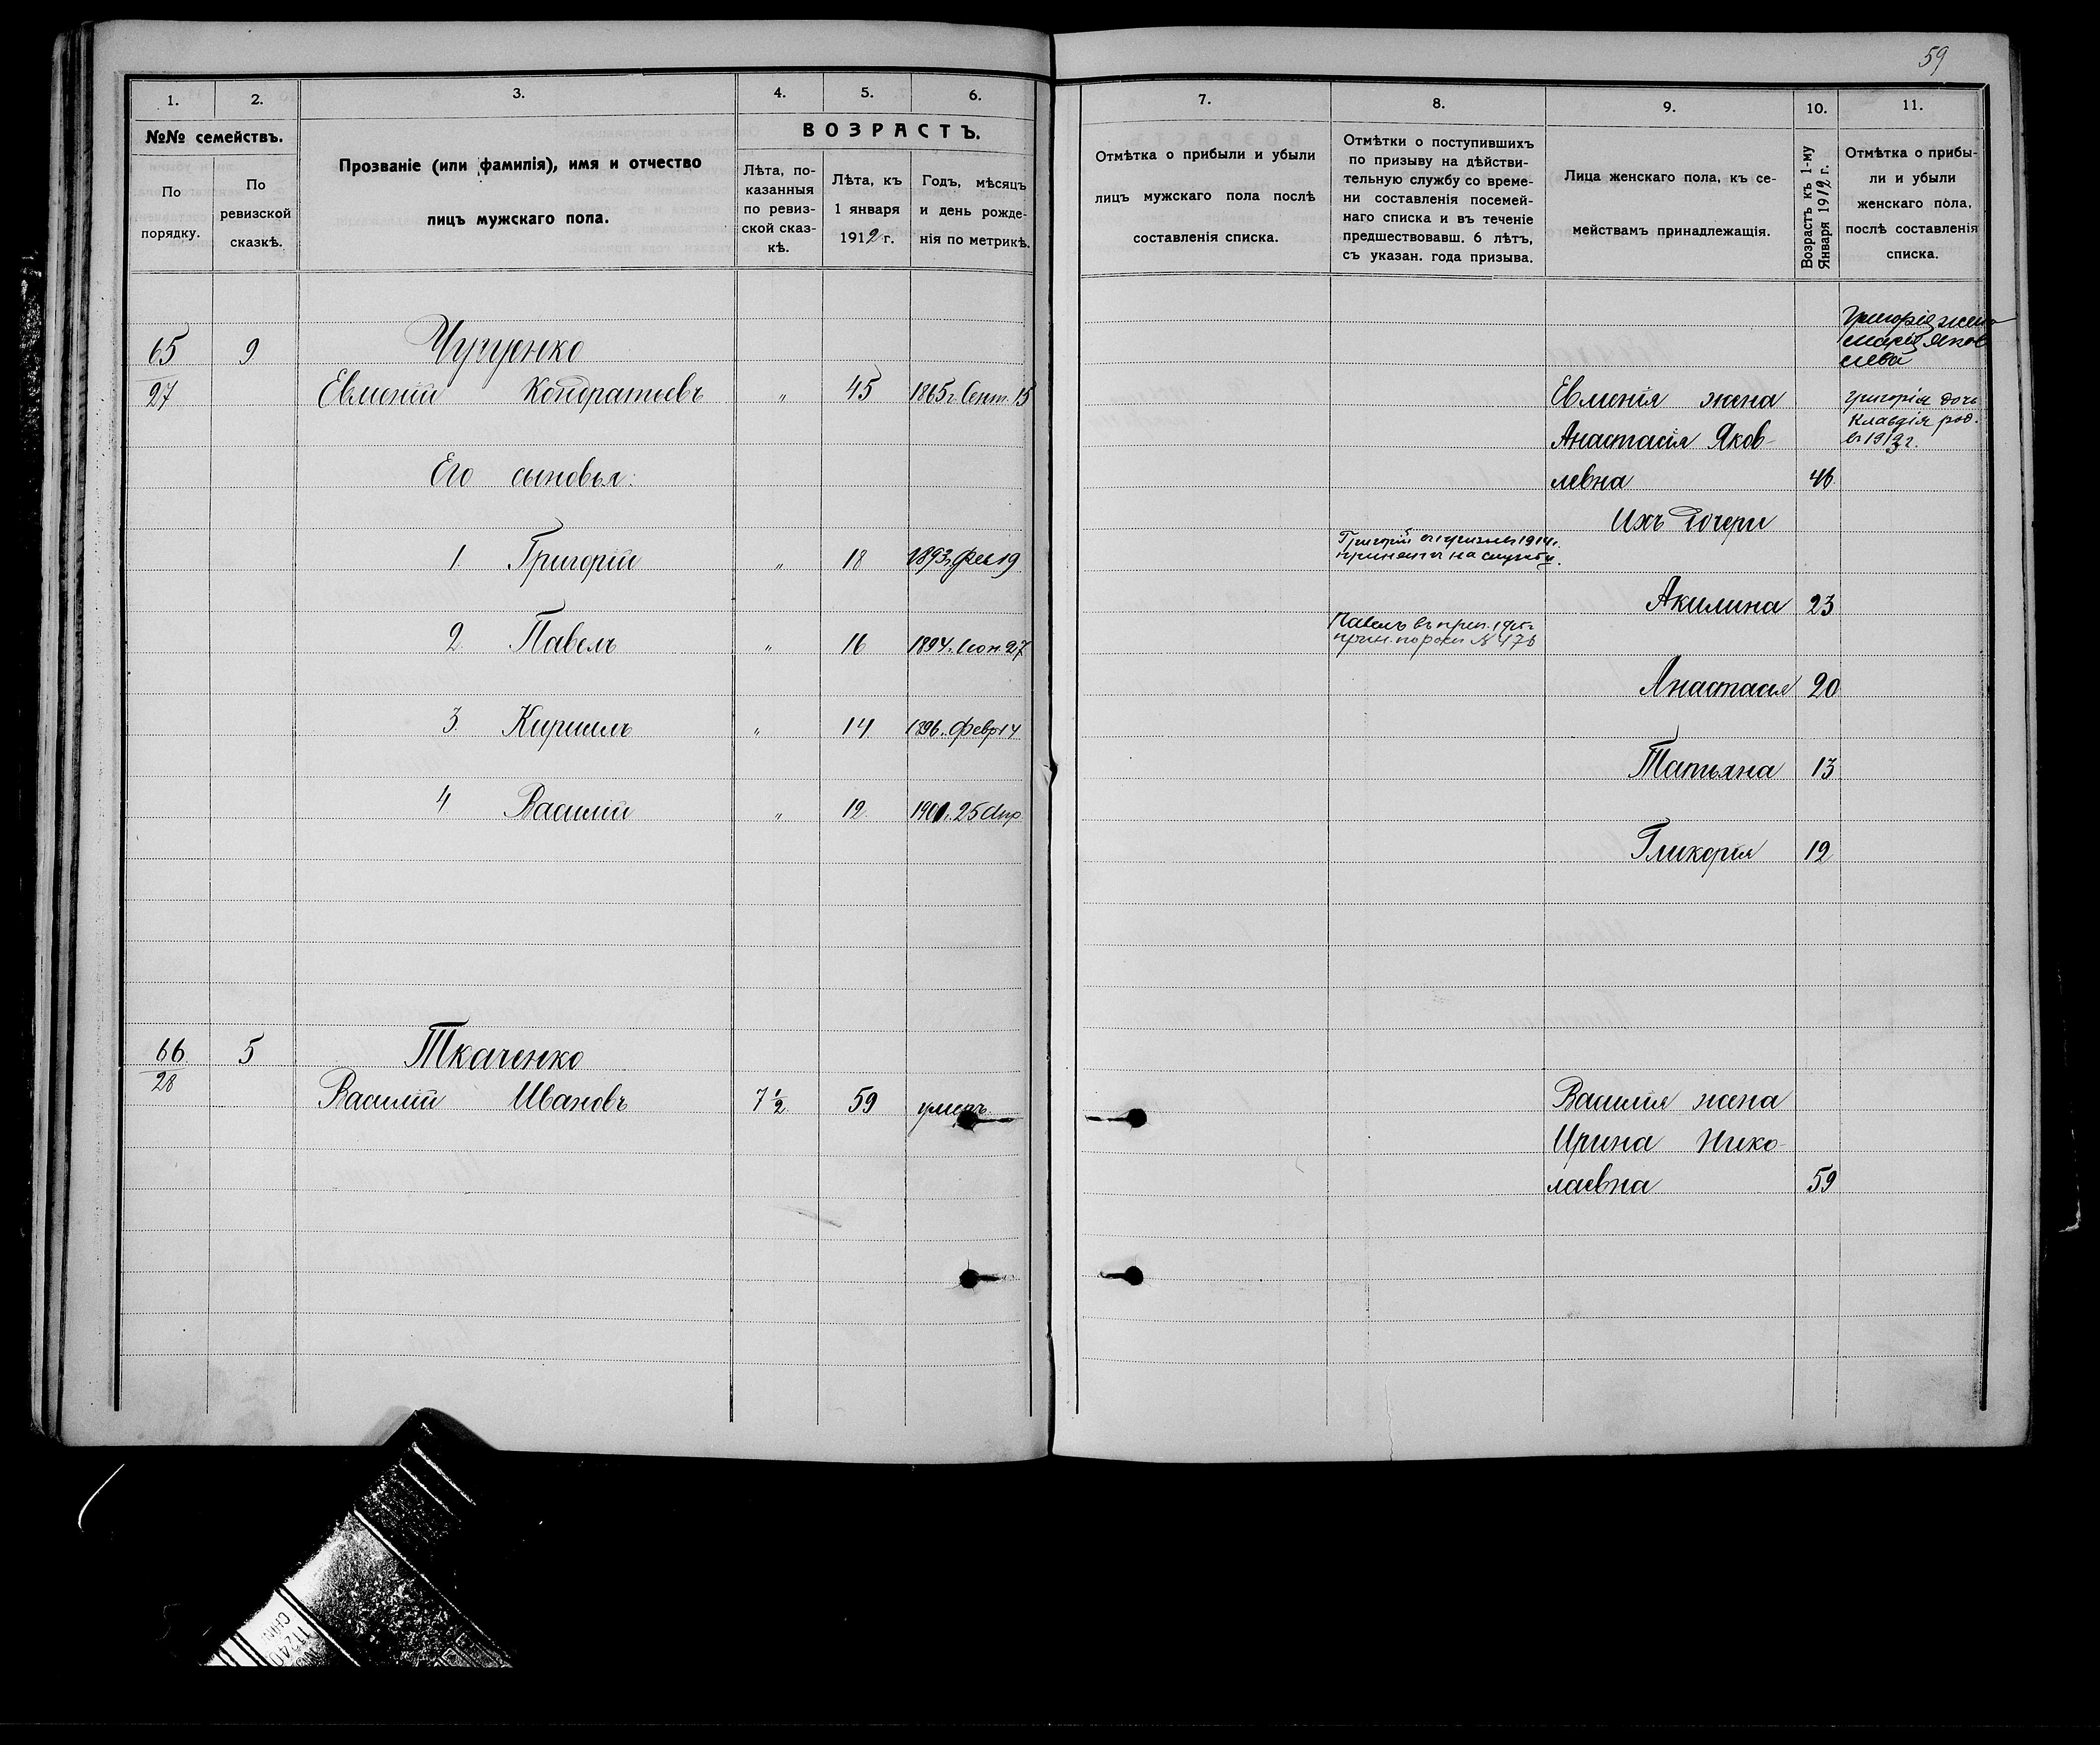 59
1. 2. 3. 4. 5. 6.
№№ семействъ.
По порядку.
По ревизской сказкѣ.
Прозваніе (или фамилія), имя и отчество
лицъ мужскаго пола.
ВОЗРАСТЪ.
Лѣта, по-
казанныя
по ревиз-
ской сказ-
кѣ.
Лѣта, къ
1 января
1912 г.
Годъ, мѣсяцъ
и день рожде-
нія по метрикѣ.
65 9 Чугуенко
27 Евменій Кондратьевъ " 45 1865 г. Сент. 15
Его сыновья:
1 Григорій " 18 1893 г. Фев 19
2. Павелъ " 16 1894 г. Іюн. 27
3. Кириллъ " 14 1896 г. Февр 14
4 Василій " 12. 1901 г. 25 Апр
66 5 Ткаченко
28 Василій Ивановъ 7 ½ 59 умеръ
7. 8. 9. 10. 11.
Отмѣтка о прибыли и убыли
лицъ мужскаго пола послѣ
составленія списка.
Отмѣтки о поступившихъ
по призыву на дѣйстви-
тельную службу со време-
ни составленія посемей-
наго списка и въ теченіе
предшествовавш. 6 лѣтъ,
съ указан. года призыва.
Лица женскаго пола, къ се-
мействамъ принадлежащія.
Возрастъ къ 1-му
Января 1912 г.
Отмѣтка о прибы-
ли и убыли
женскаго пола,
послѣ составленія
списка.
Григорія жена
Марія Яков
лева
Евменія жена
Григорія дочь
Клавдія род.
въ 1913 г.
Анастасія Яков-
левна 46
Ихъ дочери
Григорій въ призывъ 1914 г.
принятъ на службу.
Акилина 23
Павелъ въ приз. 1915 г
прин.
Анастасія 20
Татьяна 13
Гликерія 12
Василія жена
Ирина Нико-
лаевна 59